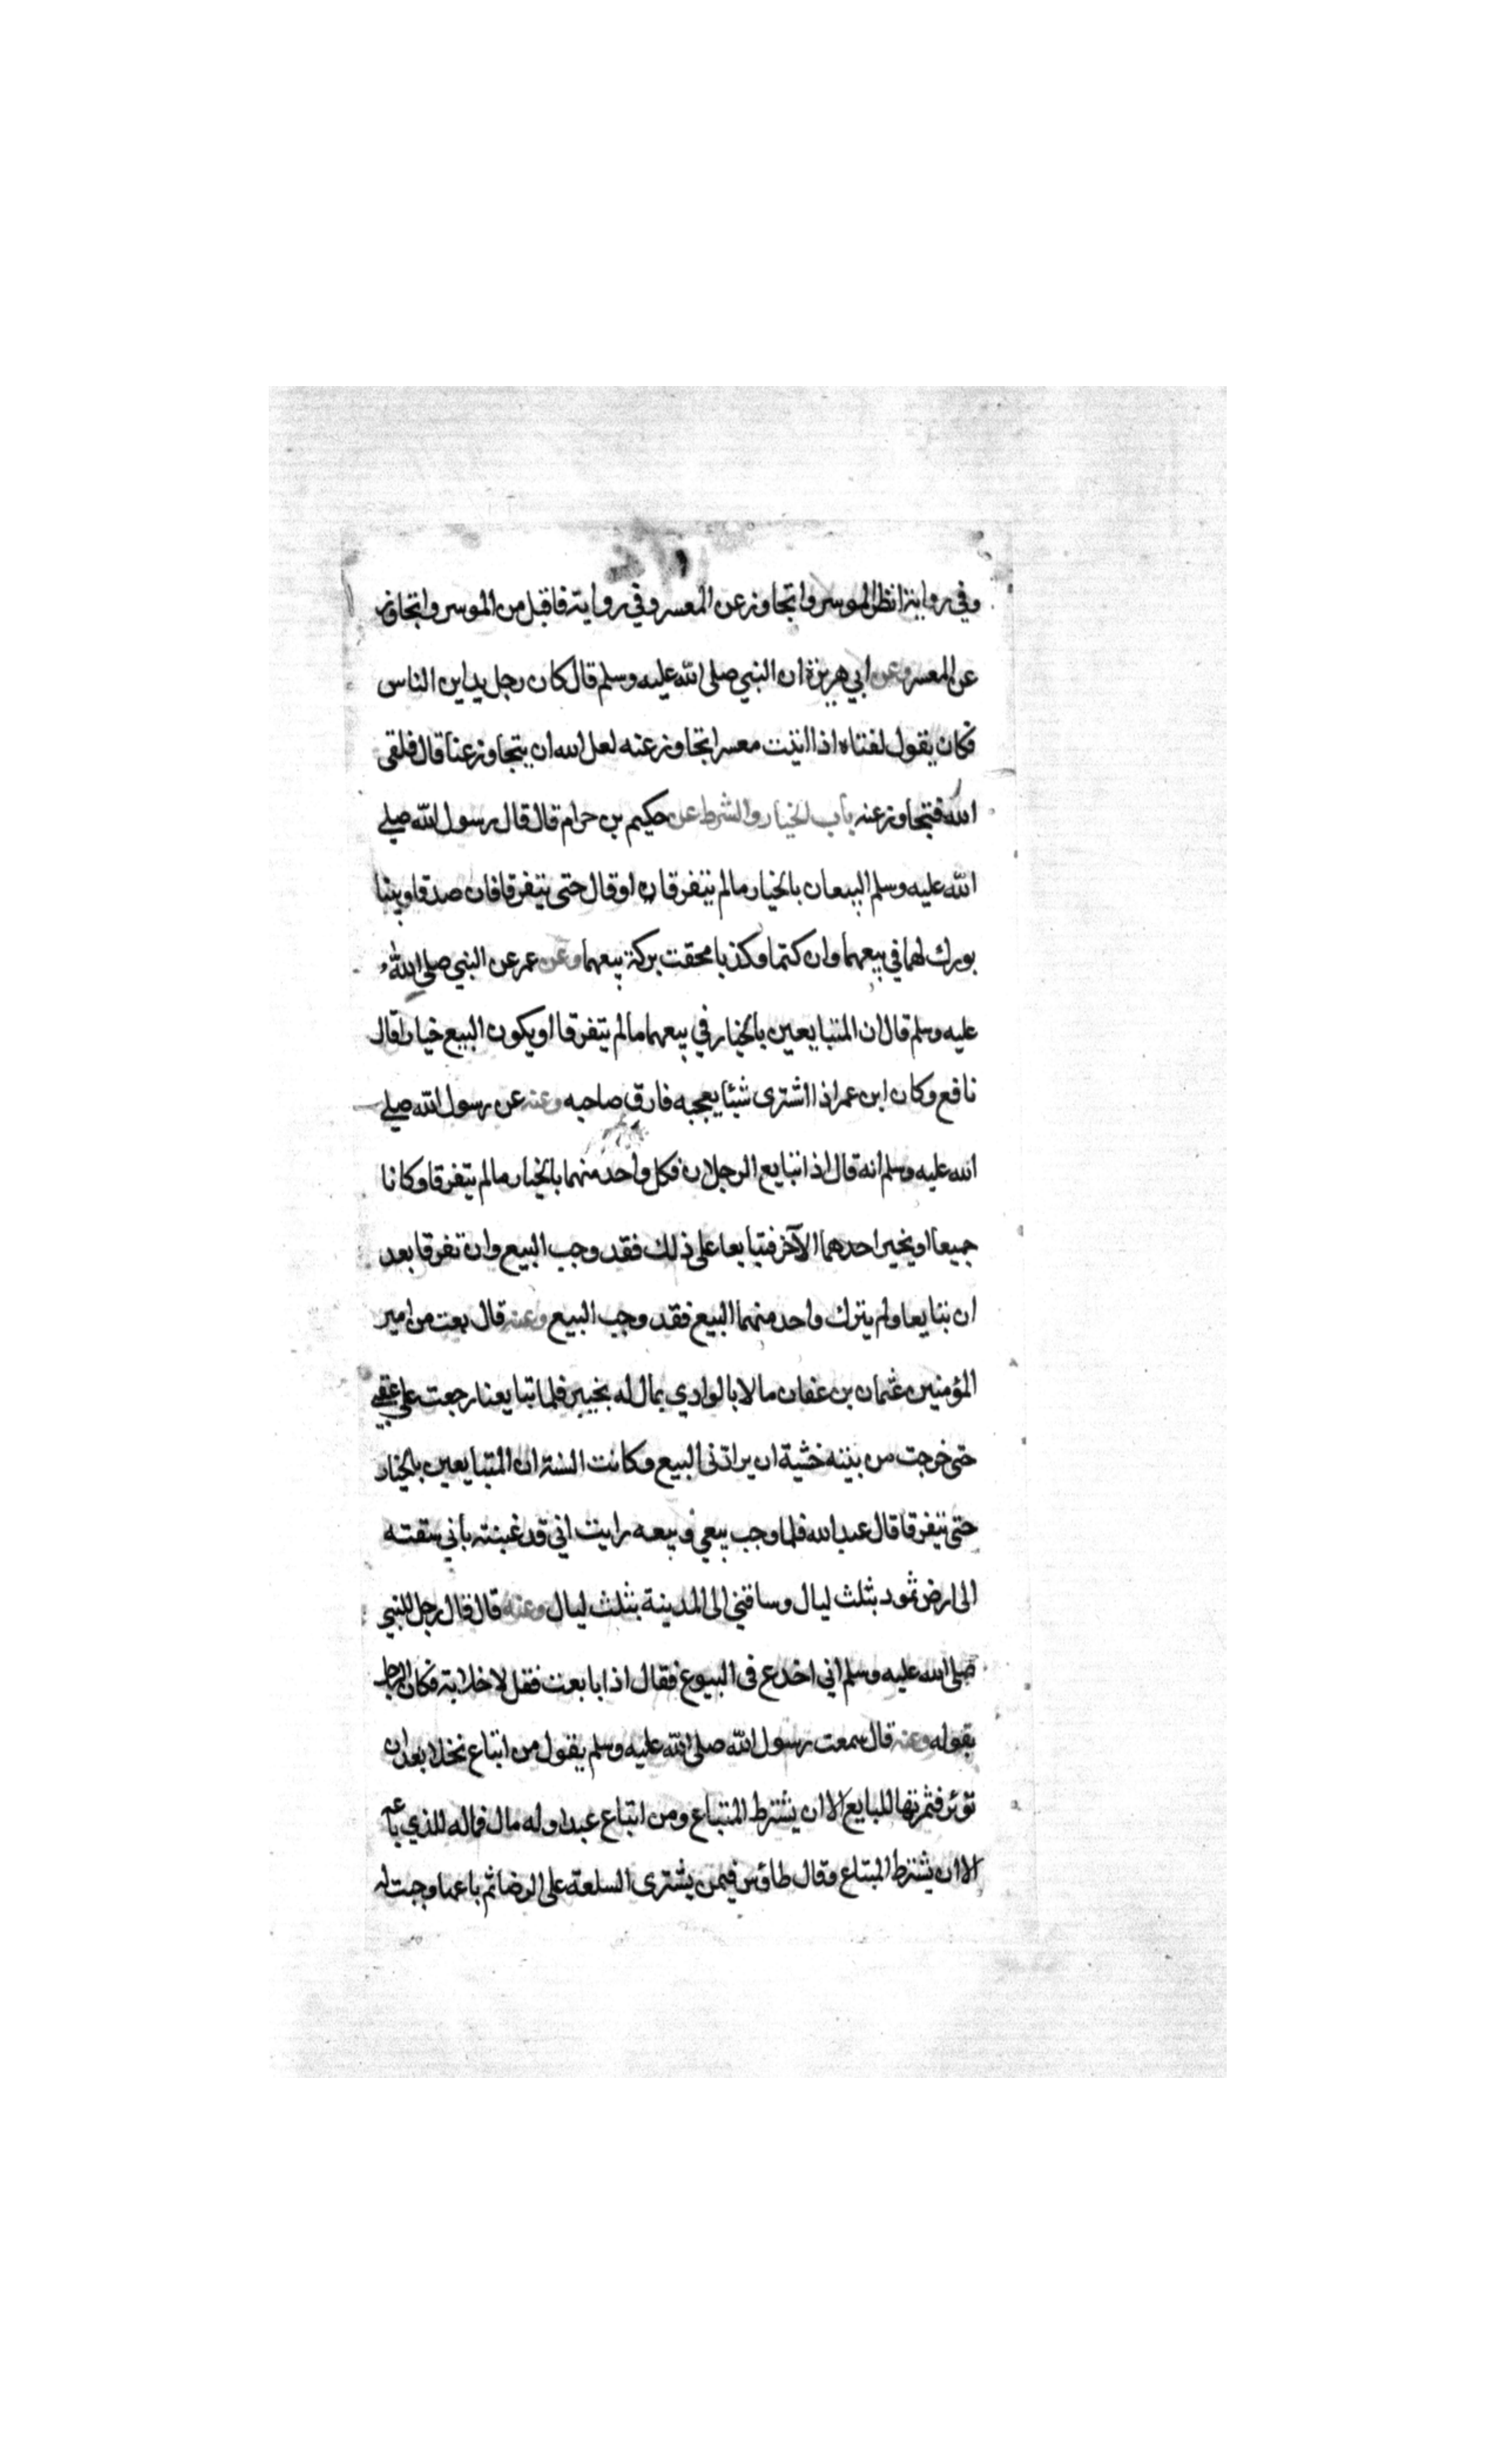 وفي رواية انظر الموسر واتجاوز عن المعسر وفي رواية فاقبل من الموسر واتجاوز
عن المعسر وعن ابي هريرة ان النبي صلى الله عليه وسلم قال كان رجل يداين الناس
فكان يقول لفتاه اذا اتيت معسرا تجاوز عنه لعل الله ان يتجاوز عنا قال فلقى
الله فتجاوز عنه باب الخيار والشرط عن حكيم بن حزام قال قال رسول الله صلى
الله عليه وسلم البيعان بالخيار مالم يتفرقا او قال حتى يتفرقا فان صدقا وبينا
بورك لهما في بيعهما وان كتما وكذبا محقت بركة بيعهما وعن عمر عن النبي صلى الله
عليه وسلم قال ان المتبايعين بالخيار في بيعهما مالم يتفرقا او يكون البيع خيارا قال
نافع وكان ابن عمر اذا اشترى شيئا يعجبه فارق صاحبه وعنه عن رسول الله صلى
الله عليه وسلم انه قال اذا تبايع الرجلان فكل واحد منهما بالخيار مالم يتفرقا وكانا
جميعا او يخير احدهما الآخر فتبايعا على ذلك فقد وجب البيع وان تفرقا بعد
ان تبايعا ولم يترك واحد منهما البيع فقد وجب البيع وعنه قال بعت من امير
المؤمنين عثمان بن عفان مالا بالوادي بمال له بخيبر فلما تبايعنا رجعت على عقبي
حتى خرجت من بيته خشية ان يرادني البيع وكانت السنة ان المتبايعين بالخيار
حتى يتفرقا قال عبد الله فلما وجب بيعي وبيعه رايت اني قد غبنته باني سقته
الى ارض ثمود بثلث ليال وساقني الى المدينة بثلث ليال وعنه قال قال رجل للنبي
صلى الله عليه وسلم اني اخدع فى البيوع فقال اذا بايعت فقل لا خلابة فكان الرجل
يقوله وعنه قال سمعت رسول الله صلى الله عليه وسلم يقول من ابتاع نخلا بعد ان
تؤبر فثمرتها للبايع الا ان يشترط المبتاع ومن ابتاع عبدا وله مال فماله للذي باعه
الا ان يشترط المبتاع وقال طاؤس فيمن يشترى السلعة على الرضا ثم باعها وجبت له